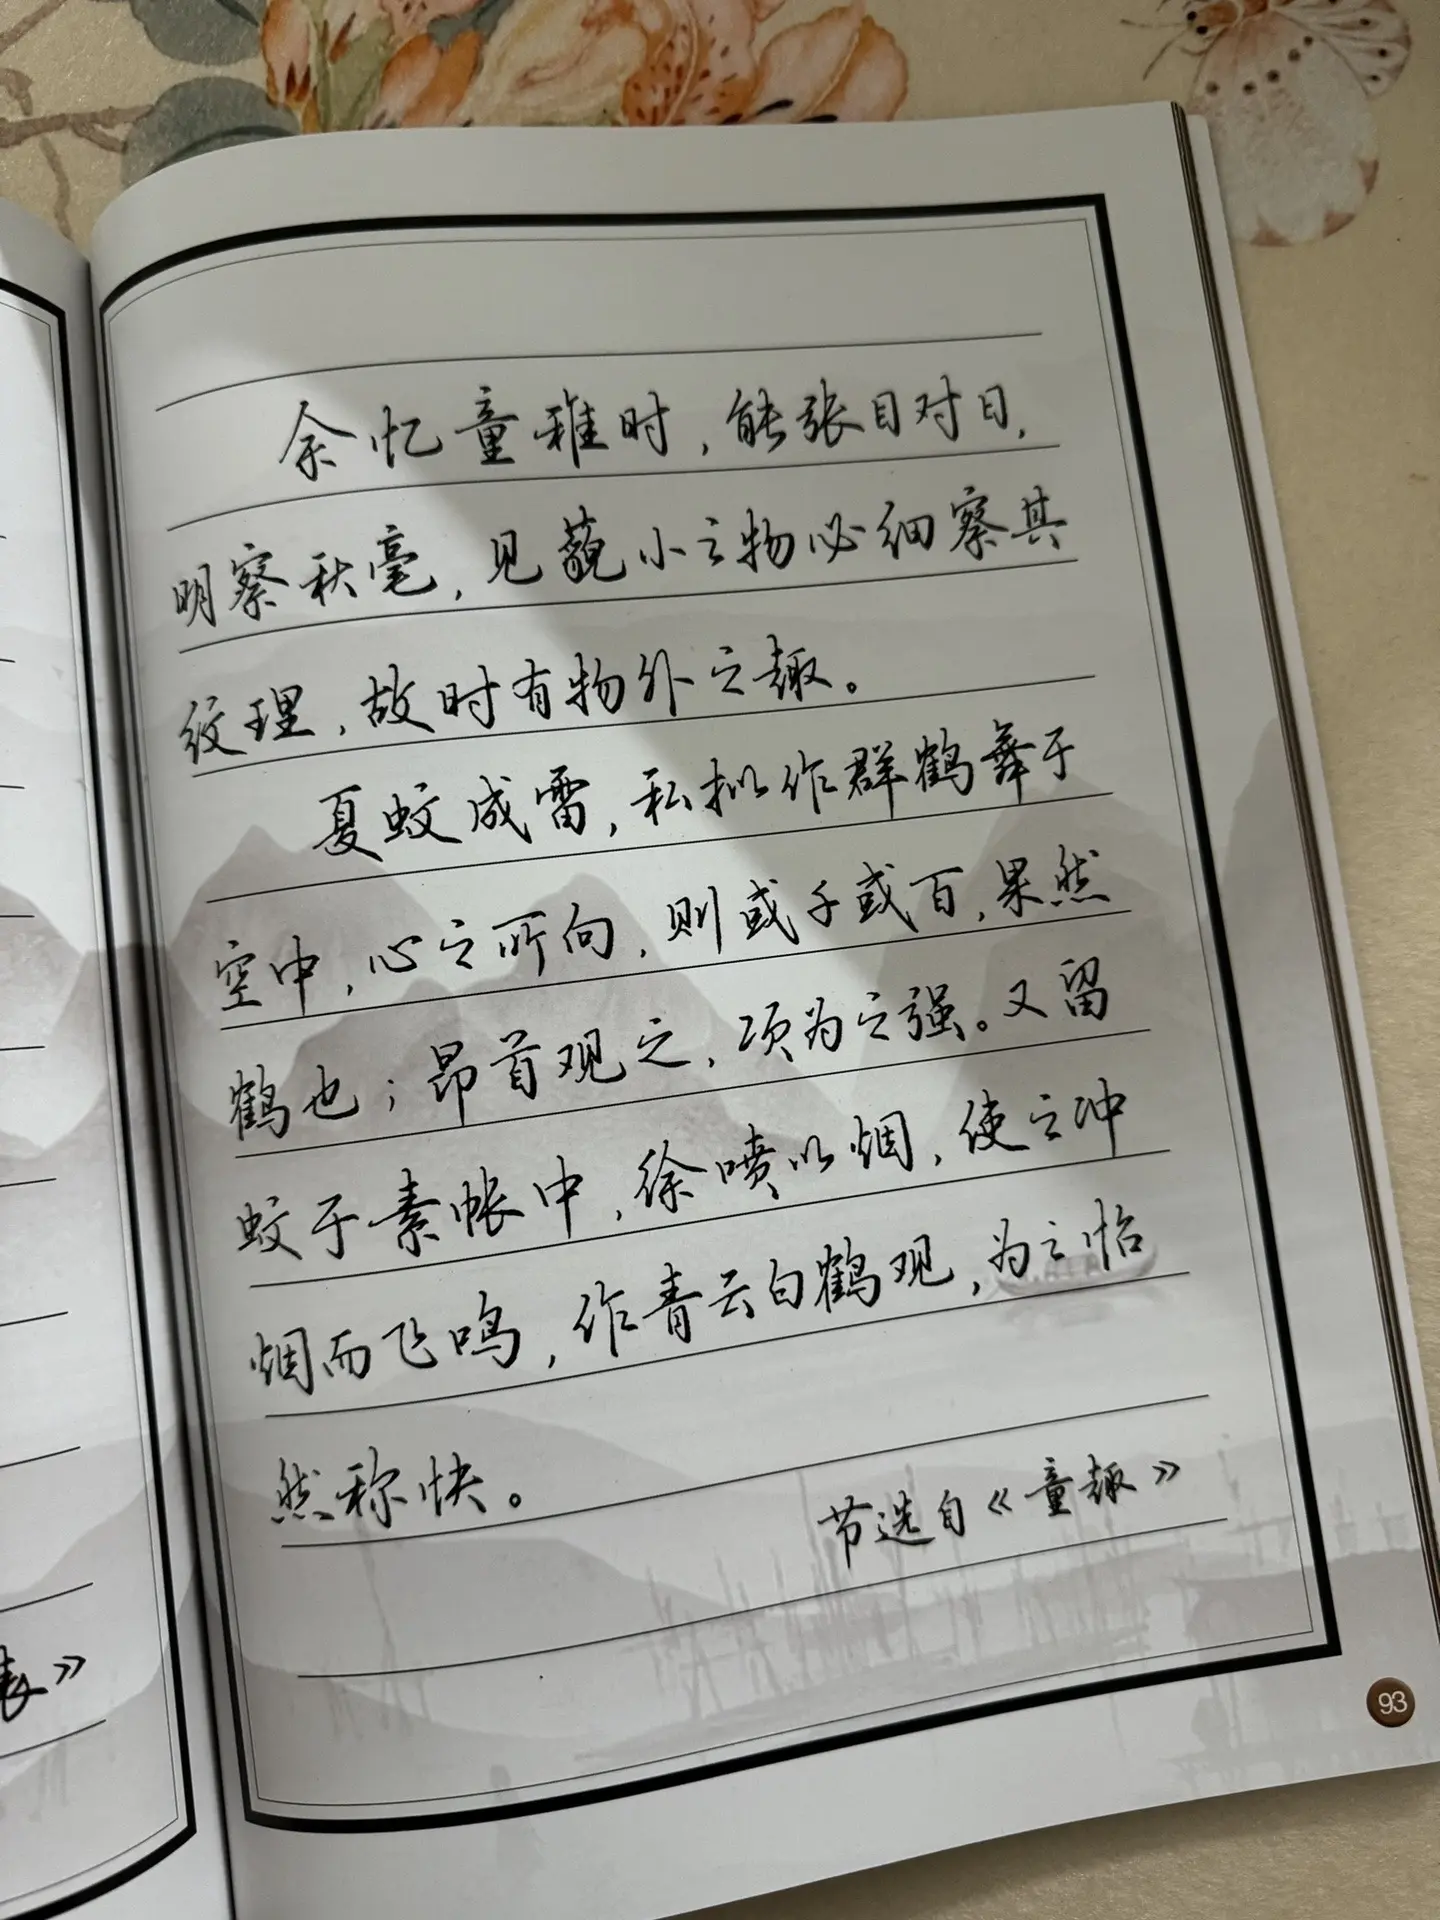 余忆童稚时，能张目对日，
明察秋毫，见藐小之物必细察其
纹理，故时有物外之趣。
夏蚊成雷，私拟作群鹤舞于
空中，心之所向，则或千或百，果然
鹤也；昂首观之，项为之强。又留
蚊于素帐中，徐喷以烟，使之冲
烟而飞鸣，作青云白鹤观，为之怡
然称快。
节选自《童趣》
》
93